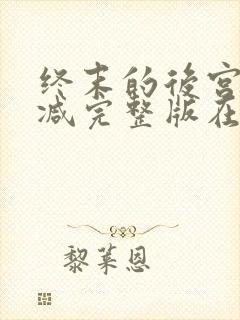 终末的後宫
减完整版在
黎莱恩